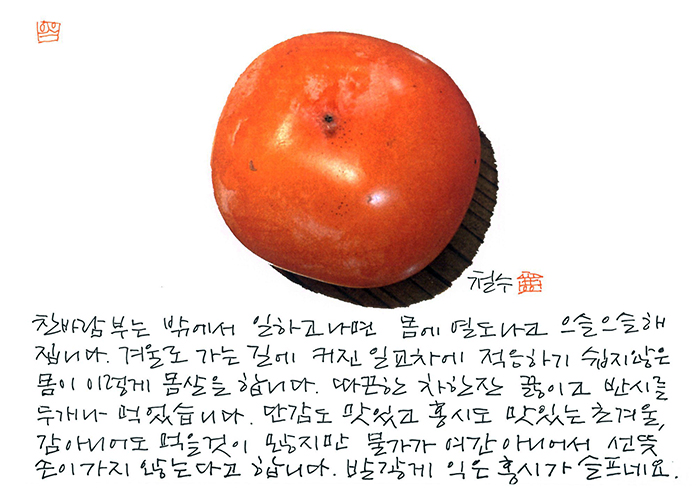 철수
찬바람 부는 밖에서 일하고나면 몸에 열도나고 으슬으슬해
집니다. 겨울로 가는 길에 커진 일교차에 적응하기 쉽지않은
몸이 이렇게 몸살을 합니다. 따끈한 차한잔 끓이고 반시를
두개나 먹었습니다. 단감도 맛있고 홍시도 맛있는 초겨울,
감아니어도 먹을것이 많지만 물가가 여간 아니어서 선뜻
손이가지 않는다고 합니다. 발갛게 익은 홍시가 슬프네요.